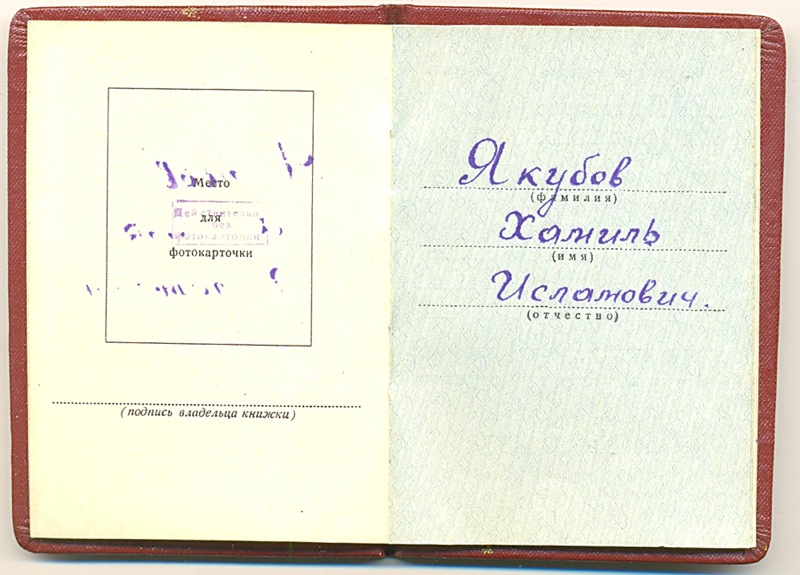 Место
Действительно
без
для
фотокарточки
фотокарточки
(подпись владельца книжки)
Якубов
(фамилия)
Хамиль
(имя)
Исламович.
(отчество)